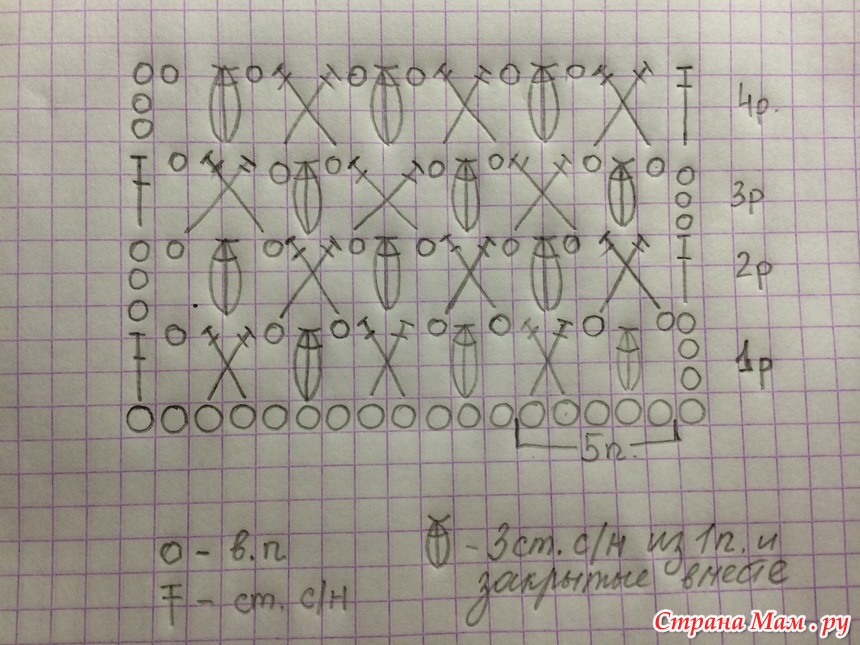 4р.
3р
2р
1р
5п.
о - в.п
- 3ст. с/н из 1п. и
закрытые вместе
- ст. с/н
Страна Мам.ру